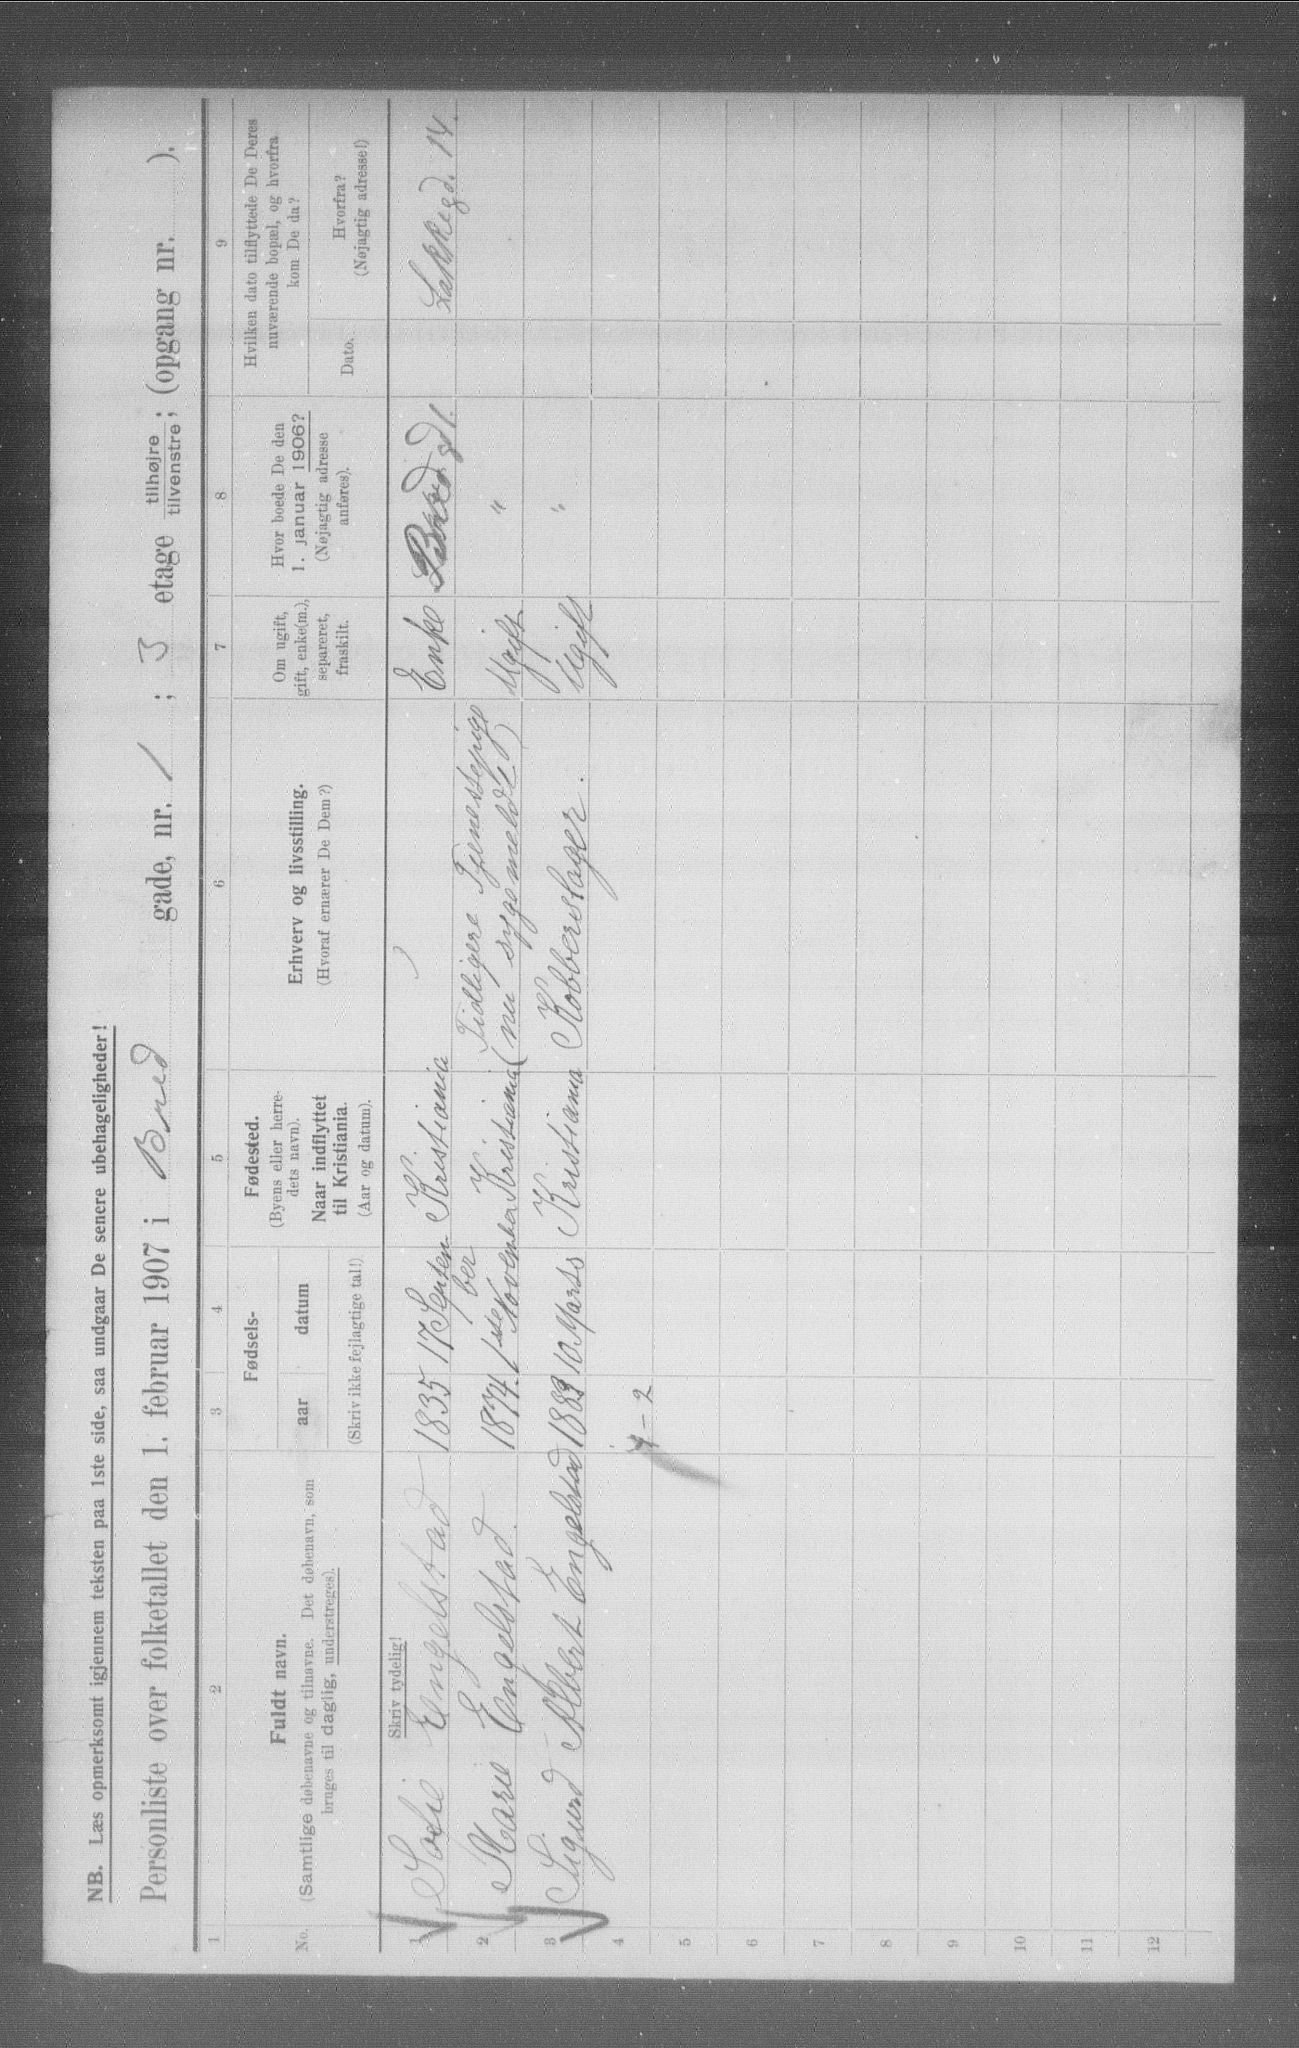 NB. Læs opmerksomt igjennem teksten paa 1ste side, saa undgaar De senere ubehageligheder!
Personliste over folketallet den 1. februar 1907 i Bred gade, nr. 1 ; 3 etage tilhøjre / tilvenstre ; (opgang nr. ).
1 2 3 4 5 6 7 8 9
No.
Fuldt navn.
(Samtlige døbenavne og tilnavne. Det døbenavn, som
bruges til daglig, understreges).
Fødsels-
aar datum
(Skriv ikke fejlagtige tal!)
Fødested.
(Byens eller herre-
dets navn).
Naar indflyttet
til Kristiania.
(Aar og datum).
Erhverv og livsstilling.
(Hvoraf ernærer De Dem?)
Om ugift,
gift, enke(m.),
separeret,
fraskilt.
Hvor boede De den
1. januar 1906?
(Nøjagtig adresse
anføres).
Hvilken dato tilflyttede De Deres
nuværende bopæl, og hvorfra
kom De da?
Dato.
Hvorfra?
(Nøjagtig adresse!)
Skriv tydelig!
1 Sofie Engelstad 1835 17 Septem- Kristiania Enke Bredgd 1. Lakkegd. 14.
ber
Tidligere Tjenestepige
2 Marie Engelstad. 1874. 1ste November Kristiania (nu sygemeldt) Ugift "
3 Sigurd Albert Engelstad 1883 10 Marts Kristiania Kobberslager. Ugift "
4
1 - 2
5
6
7
8
9
10
11
12